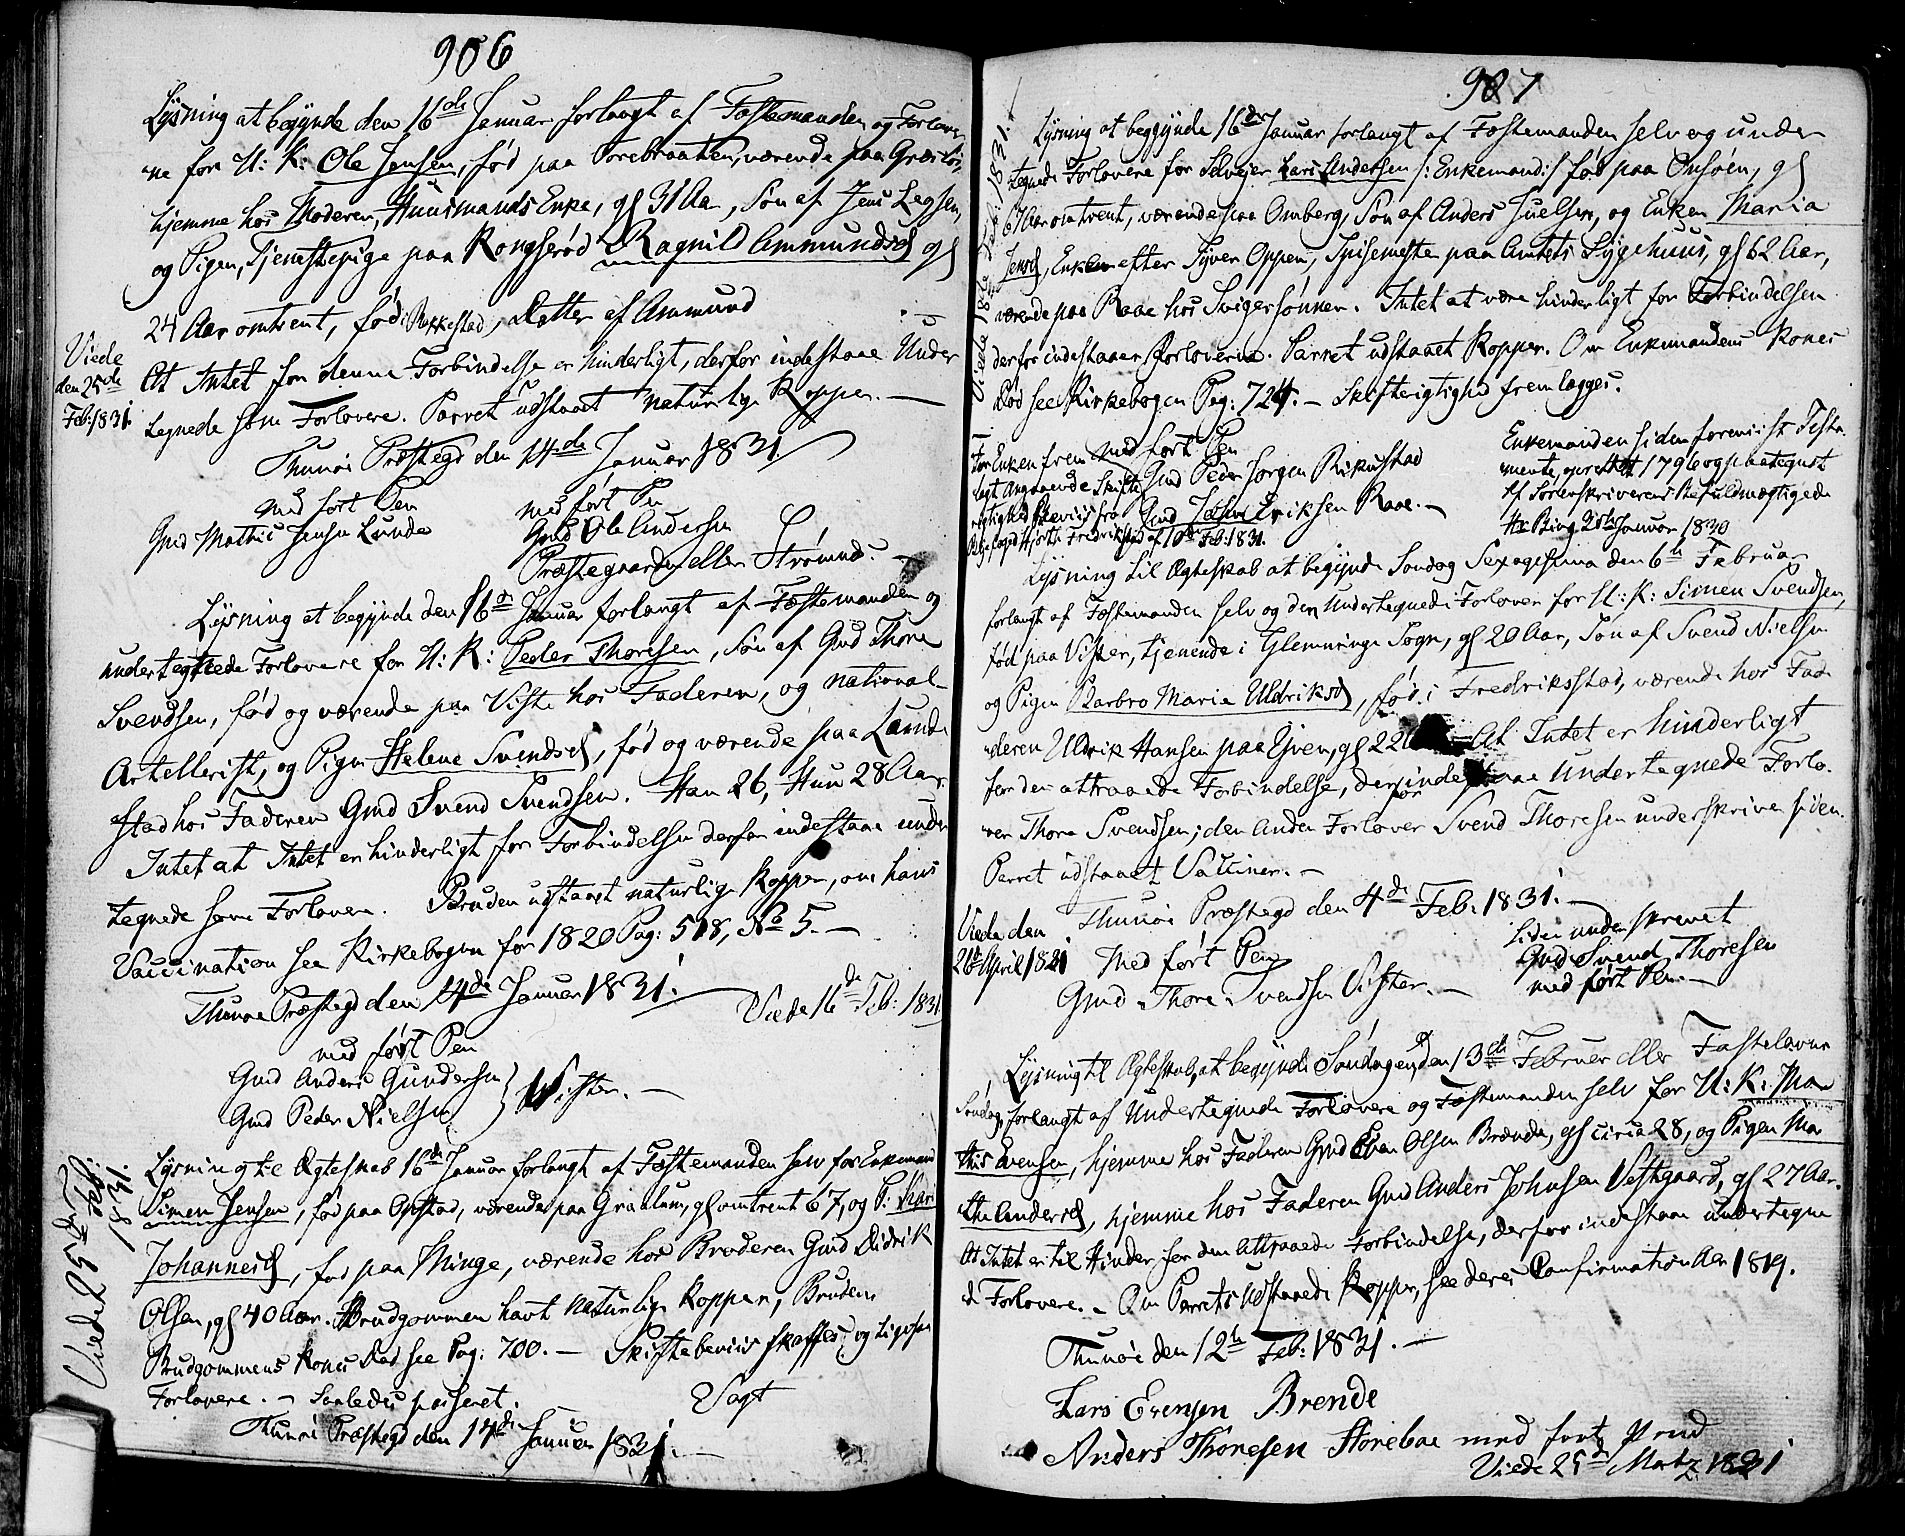 906
Lysning at begynde den 16de Januar forlangt af Fæstemanden og Forlover-
ne for U: K: Ole Jensen, fød paa Torebraaten, værende paa
hjemme hos Moderen, Huusmands Enke, gl 31 Aar, Søn af Jens
og Pigen, Tjenestepige paa Kongserød Ragnild Ammundsd gl
24 Aar omtrent, fød i Rakkestad, Datter af Ammund
Viede
den 25de
Feb: 1831
At Intet for denne Forbindelse er hinderligt, derfor indestaae Under
tegnede som Forlovere. Parret udstaaet naturlige Kopper. —
Thunøe Præstegd den 14de Januar 1831
med ført Pen
Gmd Mathis Jensen Lunde
med ført Pen
Gmd Ole Andersen
Præstegaarden eller Strømnes. —
Lysning at begynde den 16de Januar forlangt af Fæstemanden og
undertegnede Forlovere for U: K: Peder Thoresen, Søn af Gmd Thore
Svendsen, fød og værende paa Viste hos Faderen, og national-
Artellerist, og Pigen Helene Svendsd, fød og værende paa Lund-
stad hos Faderen Gmd Svend Svendsen. Han 26, Hun 28 Aar.
Intet at Intet er hinderligt for Forbindelsen derfor indestaae under
tegnede som Forlovere. Bruden udstaaet naturlige Kopper, om hans
Vaccination see Kirkebogen for 1820 Pag: 518, No 5. —
Thunøe Præstegd den 14de Januar 1831.
Viede 16de Feb: 1831
med ført Pen
Gmd Anders Gundersen
Gmd Peder Nielsen
Wister. —
Viede 25de Feb:
1831.
Lysning til Ægteskab 16de Januar forlangt af Fæstemanden selv for Enkemand
Simen Jensen, fød paa Opstad, værende paa Gralum, gl omtrent 67, og P: Kari
Johannesd, fød paa Minge, værende hos Broderen Gmd Didrik
Olsen, gl 40 Aar. Brudgommen havt naturlige Kopper, Bruden
Brudgommens Kones Død see Pag: 700. — Skiftebeviis skaffes og ligesaa
Forlovere. — Saaledes passeret.
Vogt
Thunøe Præstegd den 14de Januar 1831. —
907
Viede 18de Feb. 1831.
Lysning at begynde 16de Januar forlangt af Fæstemanden selv og under
tegnede Forlovere for Selvejer Lars Andersen /: Enkemand :/ fød paa Onsøen, gl
67 Aar omtrent, værende paa Omberg, Søn af Anders Juelsen, og Enken Maria
Jensd, Enken efter Syver Oppen, Spisemester paa Amtets Sygehuus, gl 62 Aar,
værende paa Raae hos Svigersønnen. Intet at være hinderligt for Forbindelsen
derfor indestaaer Forloverne. Parret udstaaet Kopper. Om Enkemandens Kones
Død see Kirkebogen Pag: 724. — Skifterigtighed fremlægges.
For Enken frem
lagt Angaaende Skifte
rigtighed Beviis fra
Hjorth Fredrikstad af 10de Feb: 1831.
med ført Pen
Gmd Peder Jørgen
Gmd Johan Eriksen Raae. —
Enkemanden siden foreviist Testa-
mente, oprettet 1796 og paategnet
af Sorenskriverens Befuldmægtigede
Januar 1830
Lysning til Ægteskab at begynde Søndag Sexagesima den 6te Februar
forlangt af Fæstemanden selv og den Undertegnede Forlover for U: K: Simen Svendsen,
fød paa Vister, tjenende i Glemminge Sogn, gl 20 Aar, Søn af Svend Nielsen
og Pigen Barbro Maria Uldriksd, fød i Fredriksstad, værende hos Fa-
deren Uldrik Hansen paa Gren, gl 22 At Intet er hinderligt
for den attraaede Forbindelse, derfor indestaae Undertegnede Forlo-
ver Thore Svendsen; den anden Forlover Svend Thoresen underskriver siden.
Parret udstaaet Vacciner. —
Thunøe Præstegd den 4de Feb: 1831. —
Viede den
26de April 1831
Med ført Pen
Gmd Thore Svendsen Vister. —
Siden underskrevet
Gmd Svend Thoresen
med ført Pen. —
Lysning til Ægteskab, at begynde Søndagen den 13de Februar eller Fastelavns
Søndag, forlangt af Undertegnede Forlovere og Fæstemanden selv for U: K: Ma-
this Evensen, hjemme hos Faderen Gmd Even Olsen Brænde, gl circa 28, og Pigen Mar
the Andersd, hjemme hos Faderen Gmd Anders Johnsen Vestgaard, gl 27 Aar.
At Intet er til Hinder for den attraaede Forbindelse, derfor indestaae undertegne
de Forlovere. — Om Parrets Udstaaede Kopper, see deres Confirmation Aar 1819.
Thunøe den 12te Feb: 1831. —
Lars Evensen Brende
Anders Thoresen Storebae medført Pend
Viede 25de Martz 1831